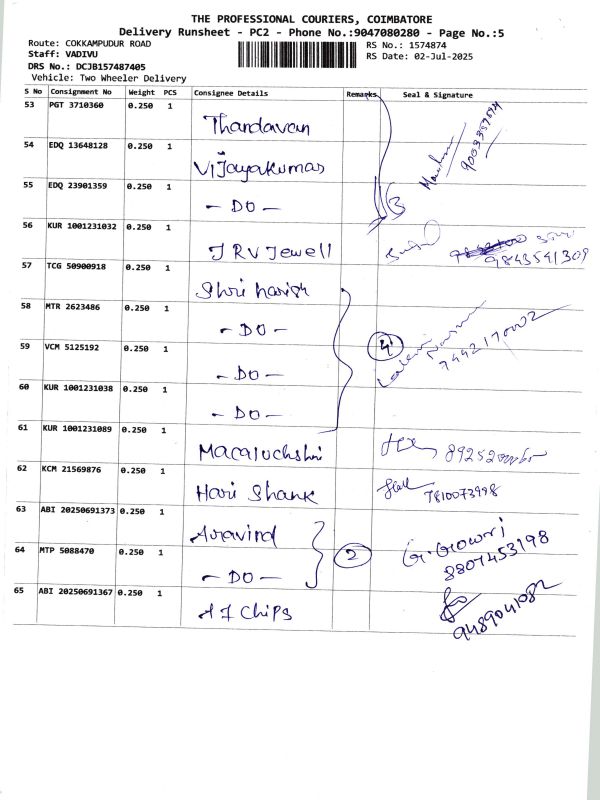 THE PROFESSIONAL COURIERS, COIMBATORE
Delivery Runsheet - PC2 - Phone No.:9047080280 - Page No.:5
Route: COKKAMPUDUR ROAD
RS No.: 1574874
Staff: VADIVU
RS Date: 02-Jul-2025
DRS No.: DCJB157487405
Vehicle: Two Wheeler Delivery
S No Consignment No Weight PCS Consignee Details Remarks Seal & Signature
53 PGT 3710360 0.250 1 Thandavan
54 EDQ 13648128 0.250 1 Vijayakumar
55 EDQ 23901359 0.250 1 - DO - 3
56 KUR 1001231032 0.250 1 J RV Jewell 9843541309
57 TCG 50900918 0.250 1 Shri harish
58 MTR 2623486 0.250 1 - DO -
59 VCM 5125192 0.250 1 - DO - 4 7442170002
60 KUR 1001231038 0.250 1 - DO -
61 KUR 1001231089 0.250 1
62 KCM 21569876 0.250 1 Hari Shank 7810073998
63 ABI 20250691373 0.250 1 Aravind G. Gowri
64 MTP 5088470 0.250 1 - DO - 2 8807453198
65 ABI 20250691367 0.250 1 A J Chips 9489041082